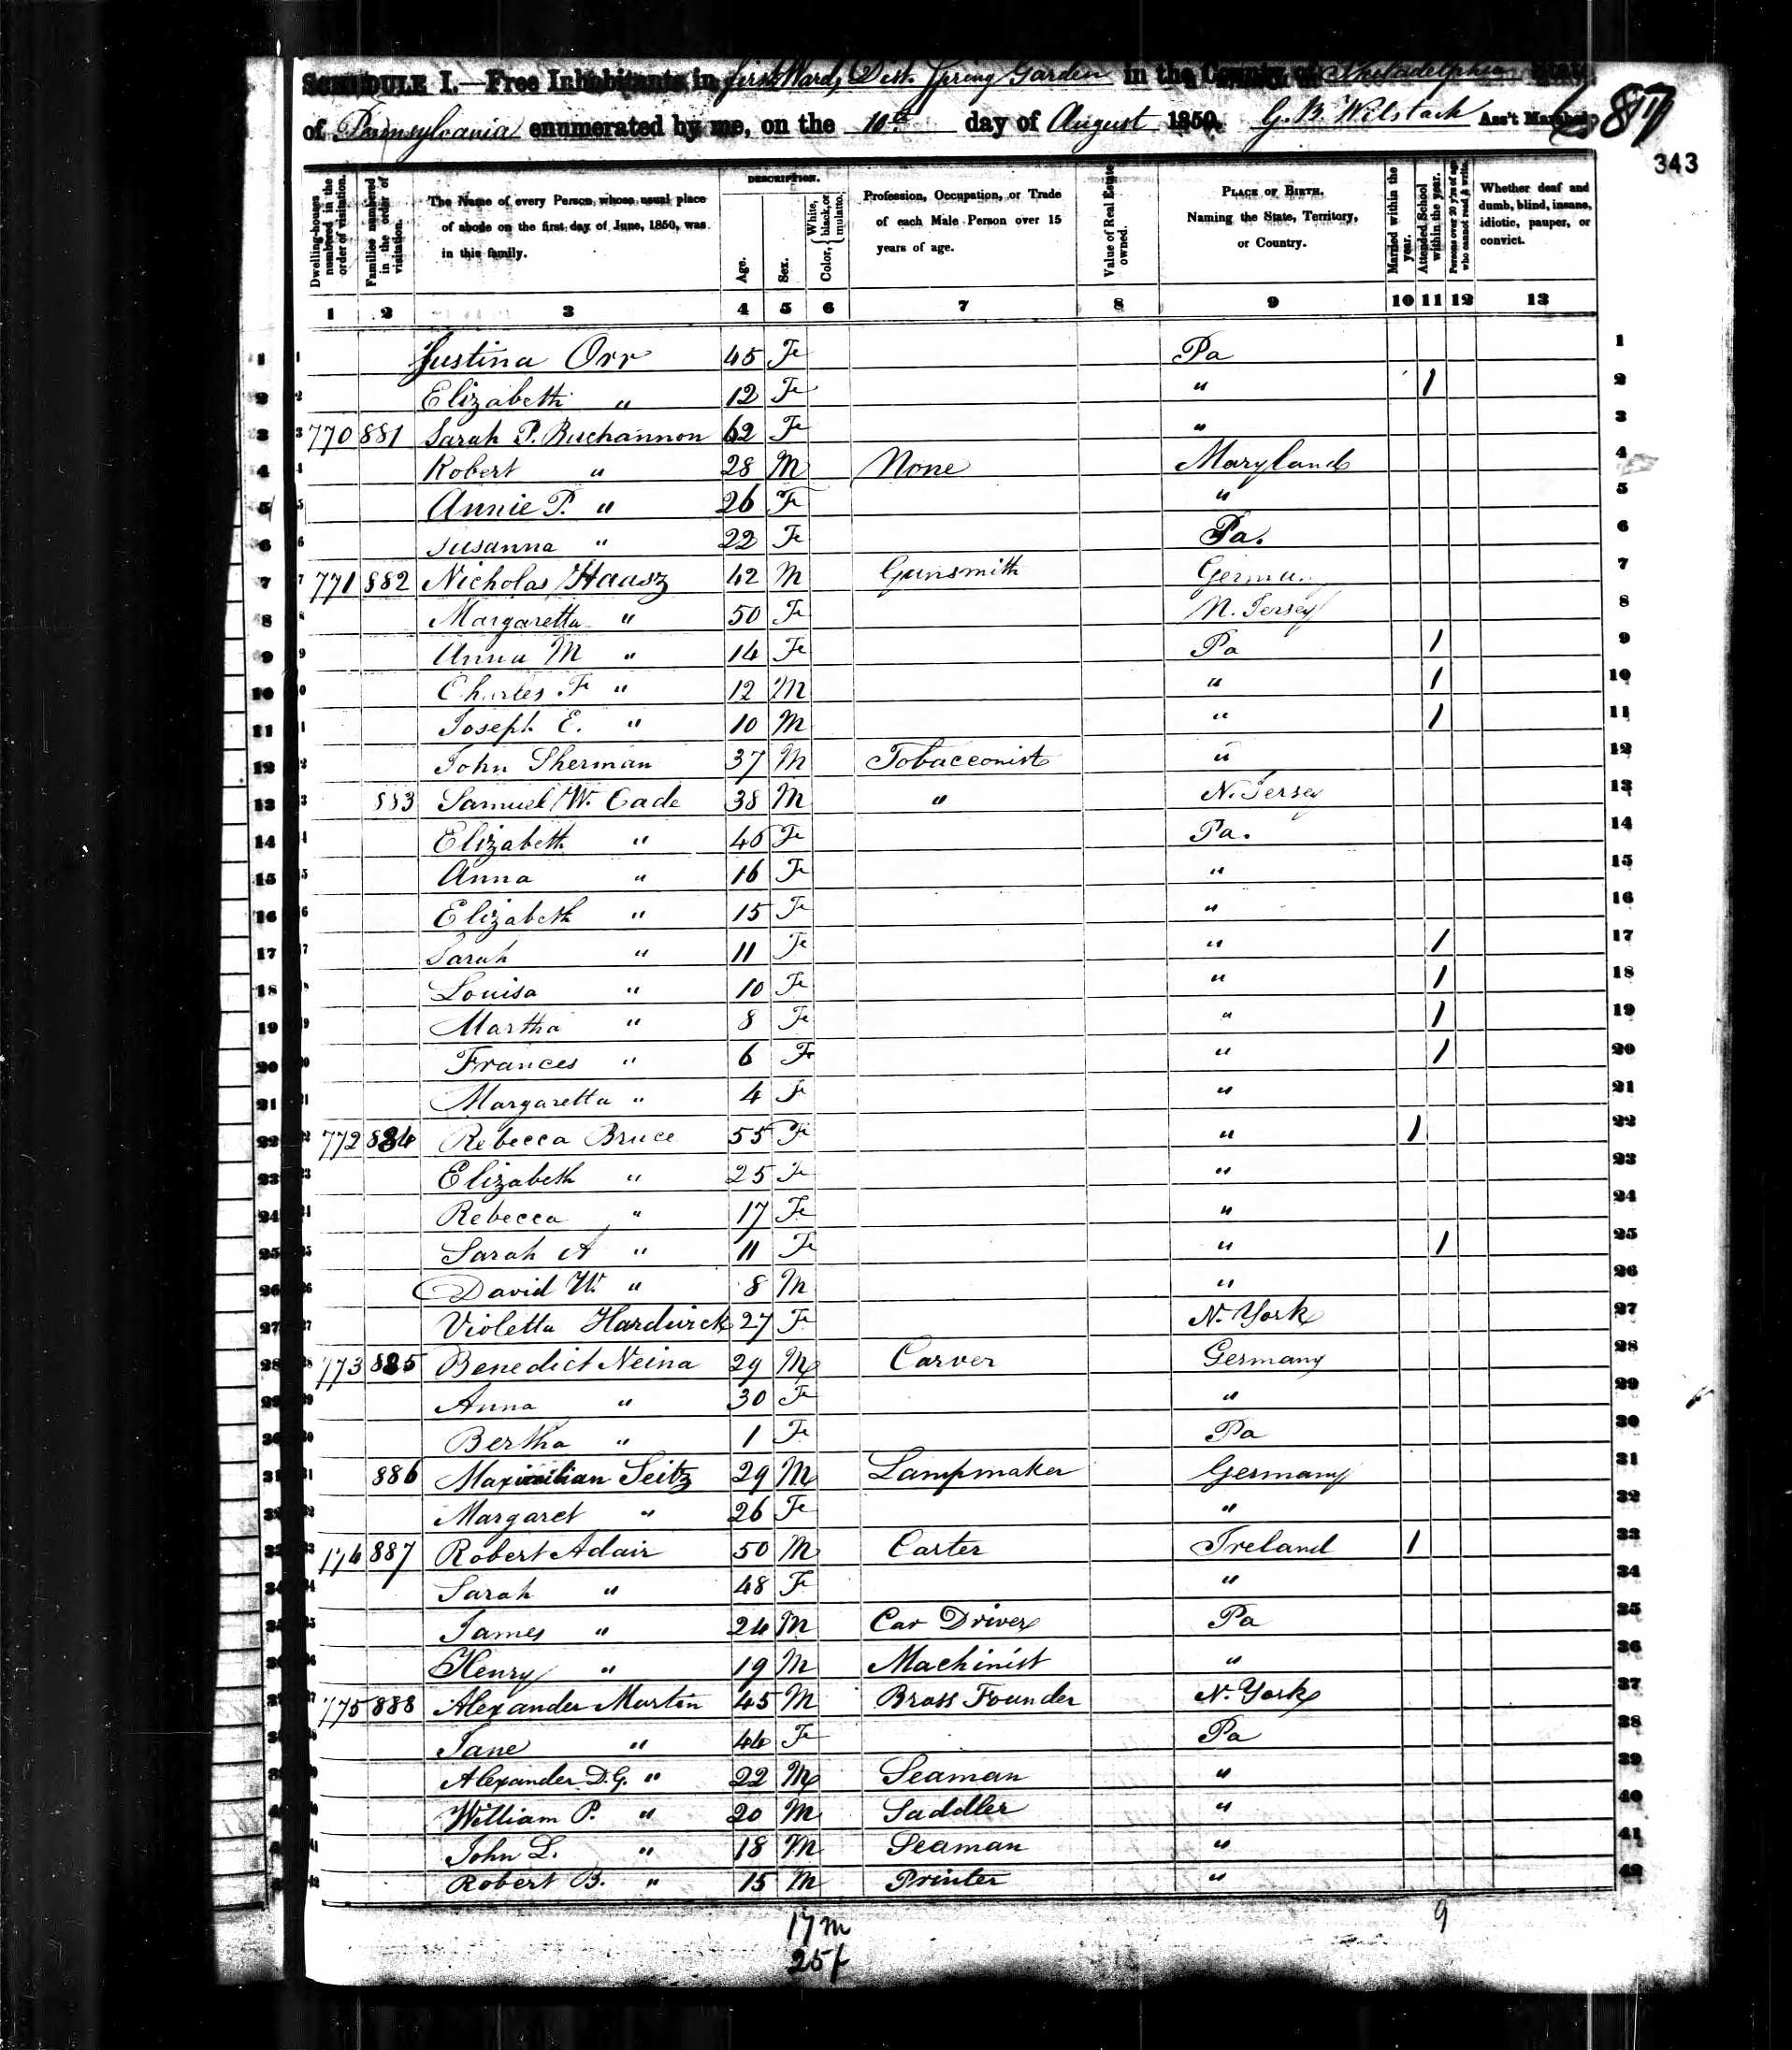 SCHEDULE I.—Free Inhabitants in first Ward, Dist. Spring Garden in the County of Philadelphia State
of Pennsylvania enumerated by me, on the 10th day of August 1850. G. B. Wilstack Ass't Marshal
343
Dwelling-houses numbered in the order of visitation.
Families numbered in the order of visitation.
The Name of every Person whose usual place of abode on the first day of June, 1850, was in this family.
DESCRIPTION.
Age.
Sex.
Color, { White, black, or mulatto.
Profession, Occupation, or Trade of each Male Person over 15 years of age.
Value of Real Estate owned.
PLACE OF BIRTH. Naming the State, Territory, or Country.
Married within the year.
Attended School within the year.
Persons over 20 y'rs of age who cannot read & write.
Whether deaf and dumb, blind, insane, idiotic, pauper, or convict.
1 2 3 4 5 6 7 8 9 10 11 12 13
1 Justina Orr 45 Fe Pa 1
2 Elizabeth " 12 Fe " 1 2
3 770 881 Sarah P. Buchannon 62 Fe " 3
4 Robert " 28 M None Maryland 4
5 Annie P. " 26 Fe " 5
6 Susanna " 22 Fe Pa. 6
7 771 882 Nicholas Haasz 42 M Gunsmith Germa 7
8 Margaretta " 50 Fe N. Jersey 8
9 Anna M " 14 Fe Pa 1 9
10 Charles F " 12 M " 1 10
11 Joseph E. " 10 M " 1 11
12 John Sherman 37 M Tobacconist " 12
13 883 Samuel W. Cade 38 M " N. Jersey 13
14 Elizabeth " 40 Fe Pa. 14
15 Anna " 16 Fe " 15
16 Elizabeth " 15 Fe " 16
17 Sarah " 11 Fe " 1 17
18 Louisa " 10 Fe " 1 18
19 Martha " 8 Fe " 1 19
20 Frances " 6 Fe " 1 20
21 Margaretta " 4 Fe " 21
22 772 884 Rebecca Bruce 55 Fe " 1 22
23 Elizabeth " 25 Fe " 23
24 Rebecca " 17 Fe " 24
25 Sarah A " 11 Fe " 1 25
26 David W. " 8 M " 26
27 Violetta Hardwick 27 Fe N. York 27
28 773 885 Benedict Neina 29 M Carver Germany 28
29 Anna " 30 Fe " 29
30 Bertha " 1 Fe Pa 30
31 886 Maximilian Seitz 29 M Lampmaker Germany 31
32 Margaret " 26 Fe " 32
33 774 887 Robert Adair 50 M Carter Ireland 1 33
34 Sarah " 48 Fe " 34
35 James " 24 M Car Driver Pa 35
36 Henry " 19 M Machinist " 36
37 775 888 Alexander Martin 45 M Brass Founder N. York 37
38 Jane " 44 Fe Pa 38
39 Alexander D.G. " 22 M Seaman " 39
40 William P. " 20 M Saddler " 40
41 John L. " 18 M Seaman " 41
42 Robert B. " 15 M Printer " 42
17 m 9
25 f